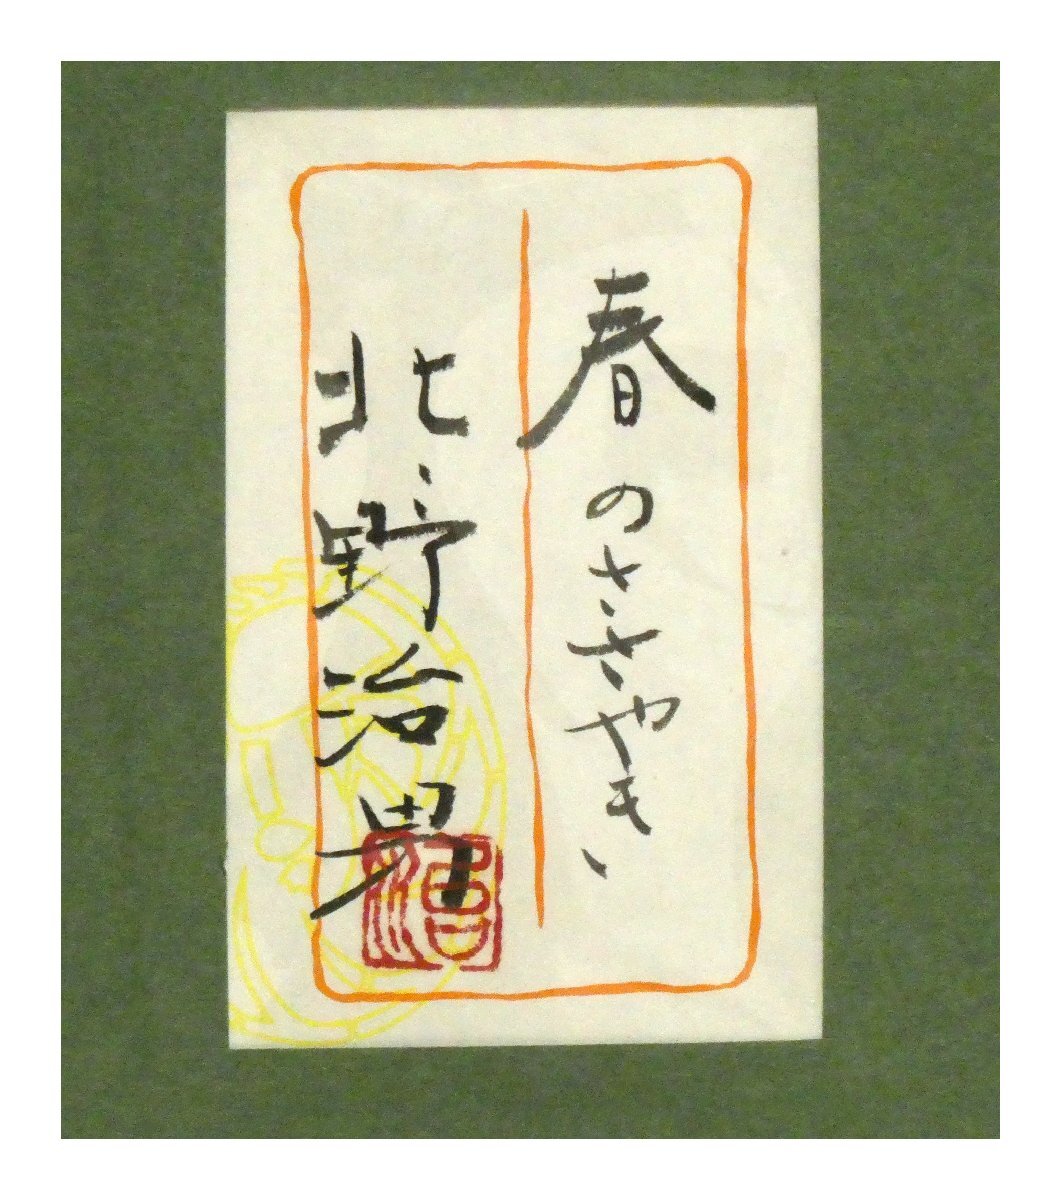 春のささやき
北野治男
治